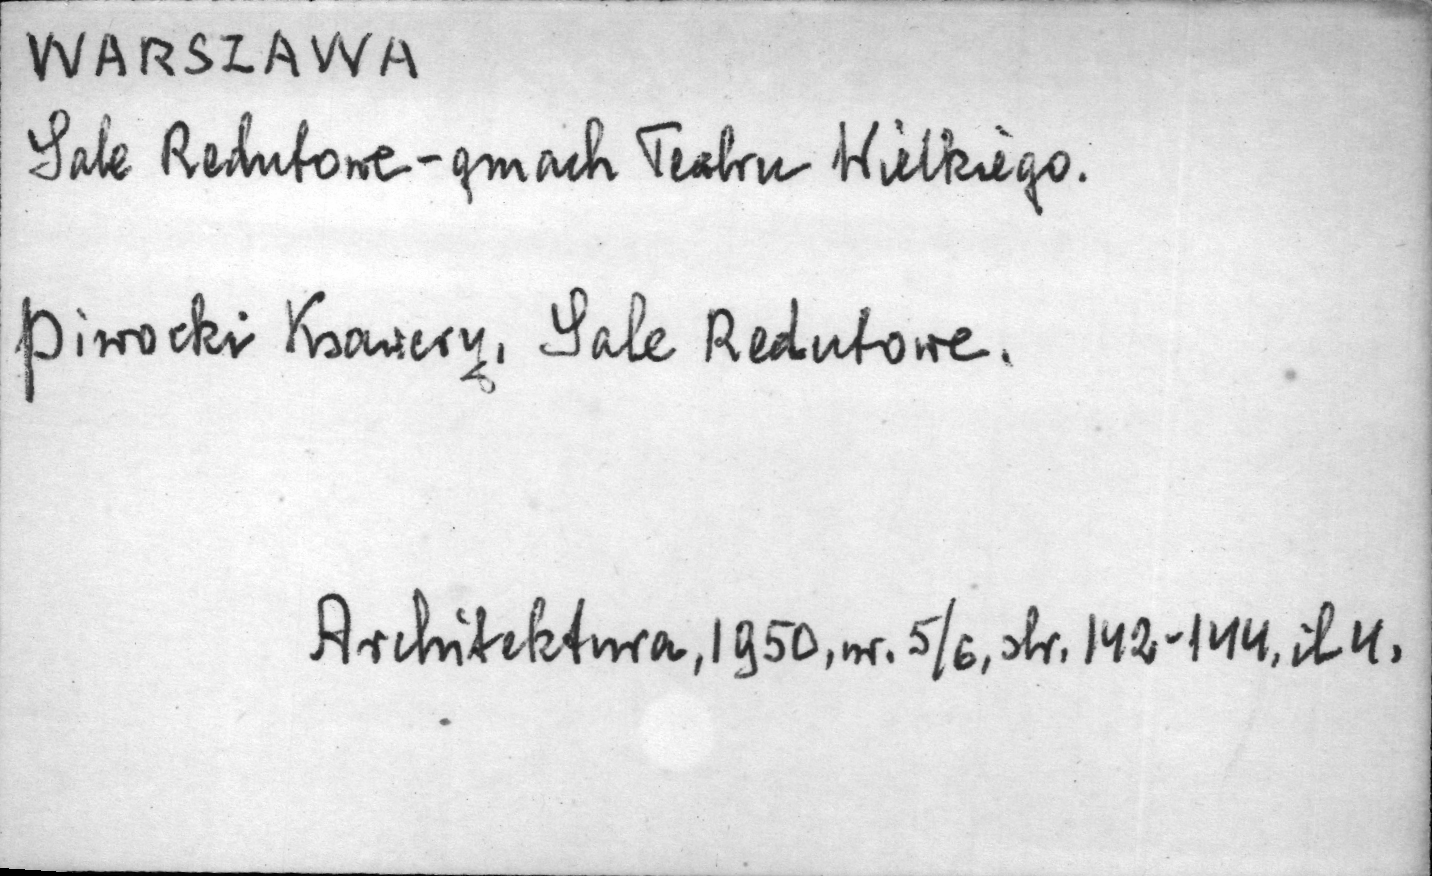 WARSZAWA
Sale Redutowe - gmach Teatru Wielkiego.
Piwocki Ksawery, Sale Redutowe.
Architektura, 1950, nr. 5/6, str. 142-144, il. 4.